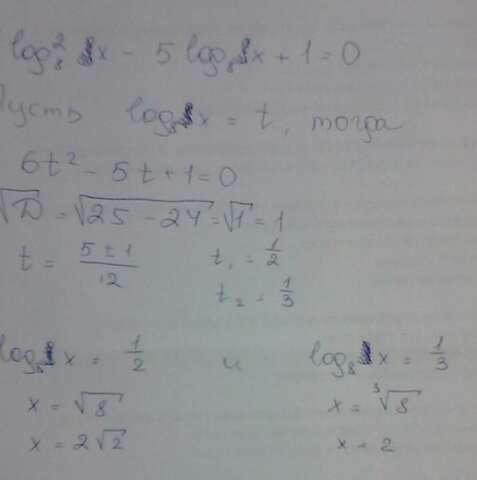 log₈² x - 5 log₈ x + 1 = 0
Пусть log₈ x = t, тогда
6t² - 5t + 1 = 0
√D = √25 - 24 = √1 = 1
t = (5 ± 1)/12 t₁ = 1/2
t₂ = 1/3
log₈ x = 1/2 и log₈ x = 1/3
x = √8 x = ³√8
x = 2√2 x = 2